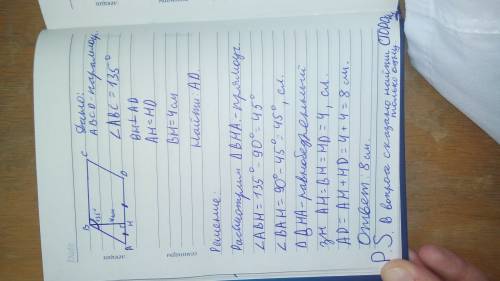 Дано:
ABCD - параллелогр.
∠ABC = 135°
BH ⊥ AD
AH = HD
BH = 4 см
Найти: AD.
B
C
135°
4см
A
H
D
Решение:
Рассмотрим ΔBHA - прямоуг.
∠ABH = 135° - 90° = 45°
∠BAH = 90° - 45° = 45°, сл.
ΔBHA - равнобедренный
зн AH = BH = HD = 4, сл.
AD = AH + HD = 4 + 4 = 8 см.
Ответ: 8 см.
P.S. В вопросе сказано найти только одну